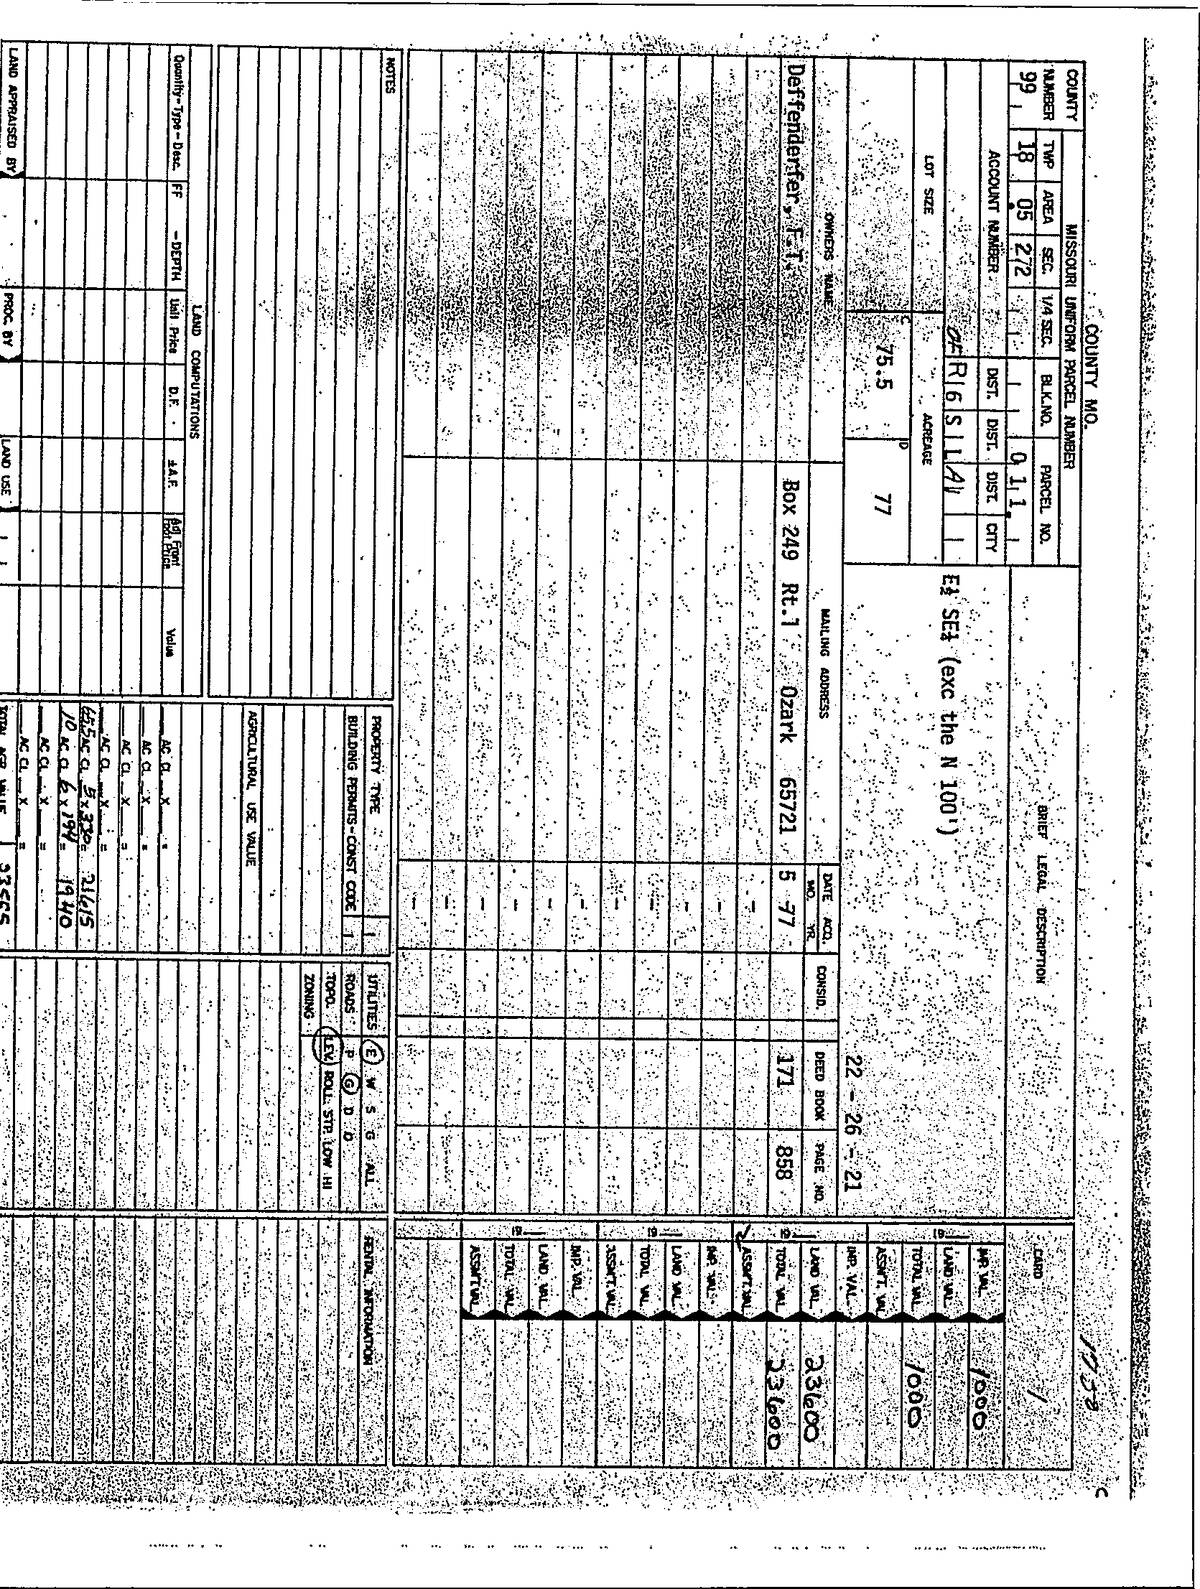 COUNTY MO.
1058
C
COUNTY NUMBER
MISSOURI UNIFORM PARCEL NUMBER
TWP AREA SEC. 1/4 SEC. BLK.NO. PARCEL NO.
99 18 05 2/2 0 1 1.
ACCOUNT NUMBER DIST. DIST. DIST. CITY
OF R 6 S L A
LOT SIZE ACREAGE
C 75.5 D 77
BRIEF LEGAL DESCRIPTION
E½ SE¼ (exc the N 100')
22 - 26 - 21
CARD 1
OWNERS NAME MAILING ADDRESS DATE ACQ. MO. YR. CONSID. DEED BOOK PAGE NO.
Deffenderfer, F.T. Box 249 Rt.1 Ozark 65721 5 -77 171 858
19
IMP. VAL. 1000
LAND VAL.
TOTAL VAL. 1000
ASSM'T. VAL.
19
IMP. VAL.
LAND VAL. 23600
TOTAL VAL. 23600
ASSM'T. VAL.
19
IMP. VAL.
LAND VAL.
TOTAL VAL.
ASSM'T. VAL.
19
IMP. VAL.
LAND VAL.
TOTAL VAL.
ASSM'T. VAL.
NOTES
PROPERTY TYPE
BUILDING PERMITS-CONST CODE
UTILITIES E W S G ALL
ROADS P G D O
TOPO. LEV. ROLL. STP. LOW HI
ZONING
RENTAL INFORMATION
LAND COMPUTATIONS
Quantity-Type-Desc. FF -DEPTH Unit Price D.F. ±A.F. Adj. Front Foot Price Value
AGRICULTURAL USE VALUE
AC CL X =
AC CL X =
AC CL X =
AC CL X =
65.5 AC CL 5 x 330 = 21615
10 AC CL 6 x 194 = 1940
AC CL X =
AC CL X =
LAND APPRAISED BY PROC. BY LAND USE
TOTAL AGR VALUE 23555